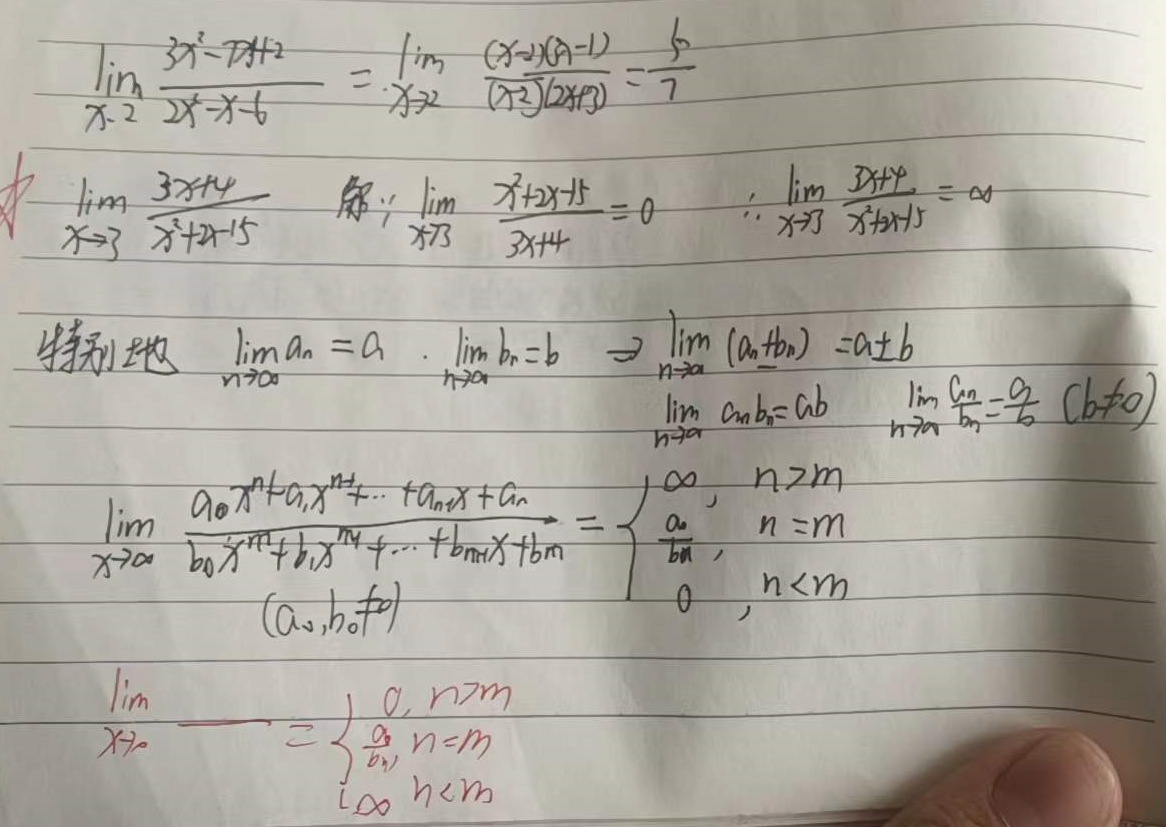 lim x→2 (3x²-7x+2)/(2x²-x-6) = lim x→2 (x-2)(3x-1)/(x-2)(2x+3) = 5/7
☆ lim x→3 (3x+4)/(x²+2x-15) 解∵ lim x→3 (x²+2x-15)/(3x+4) = 0 ∴ lim x→3 (3x+4)/(x²+2x-15) = ∞
特别地 lim n→∞ aₙ = a . lim n→∞ bₙ = b ⇒ lim n→∞ (aₙ±bₙ) = a±b
lim n→∞ aₙbₙ = ab lim n→∞ aₙ/bₙ = a/b (b≠0)
lim x→∞ (a₀xⁿ+a₁xⁿ⁻¹+…+aₙ₋₁x+aₙ)/(b₀xᵐ+b₁xᵐ⁻¹+…+bₘ₋₁x+bₘ) = { ∞, n>m
a₀/b₀, n=m
0, n<m
(a₀,b₀≠0)
lim x→0 —— = { 0, n>m
n=m
∞ n<m